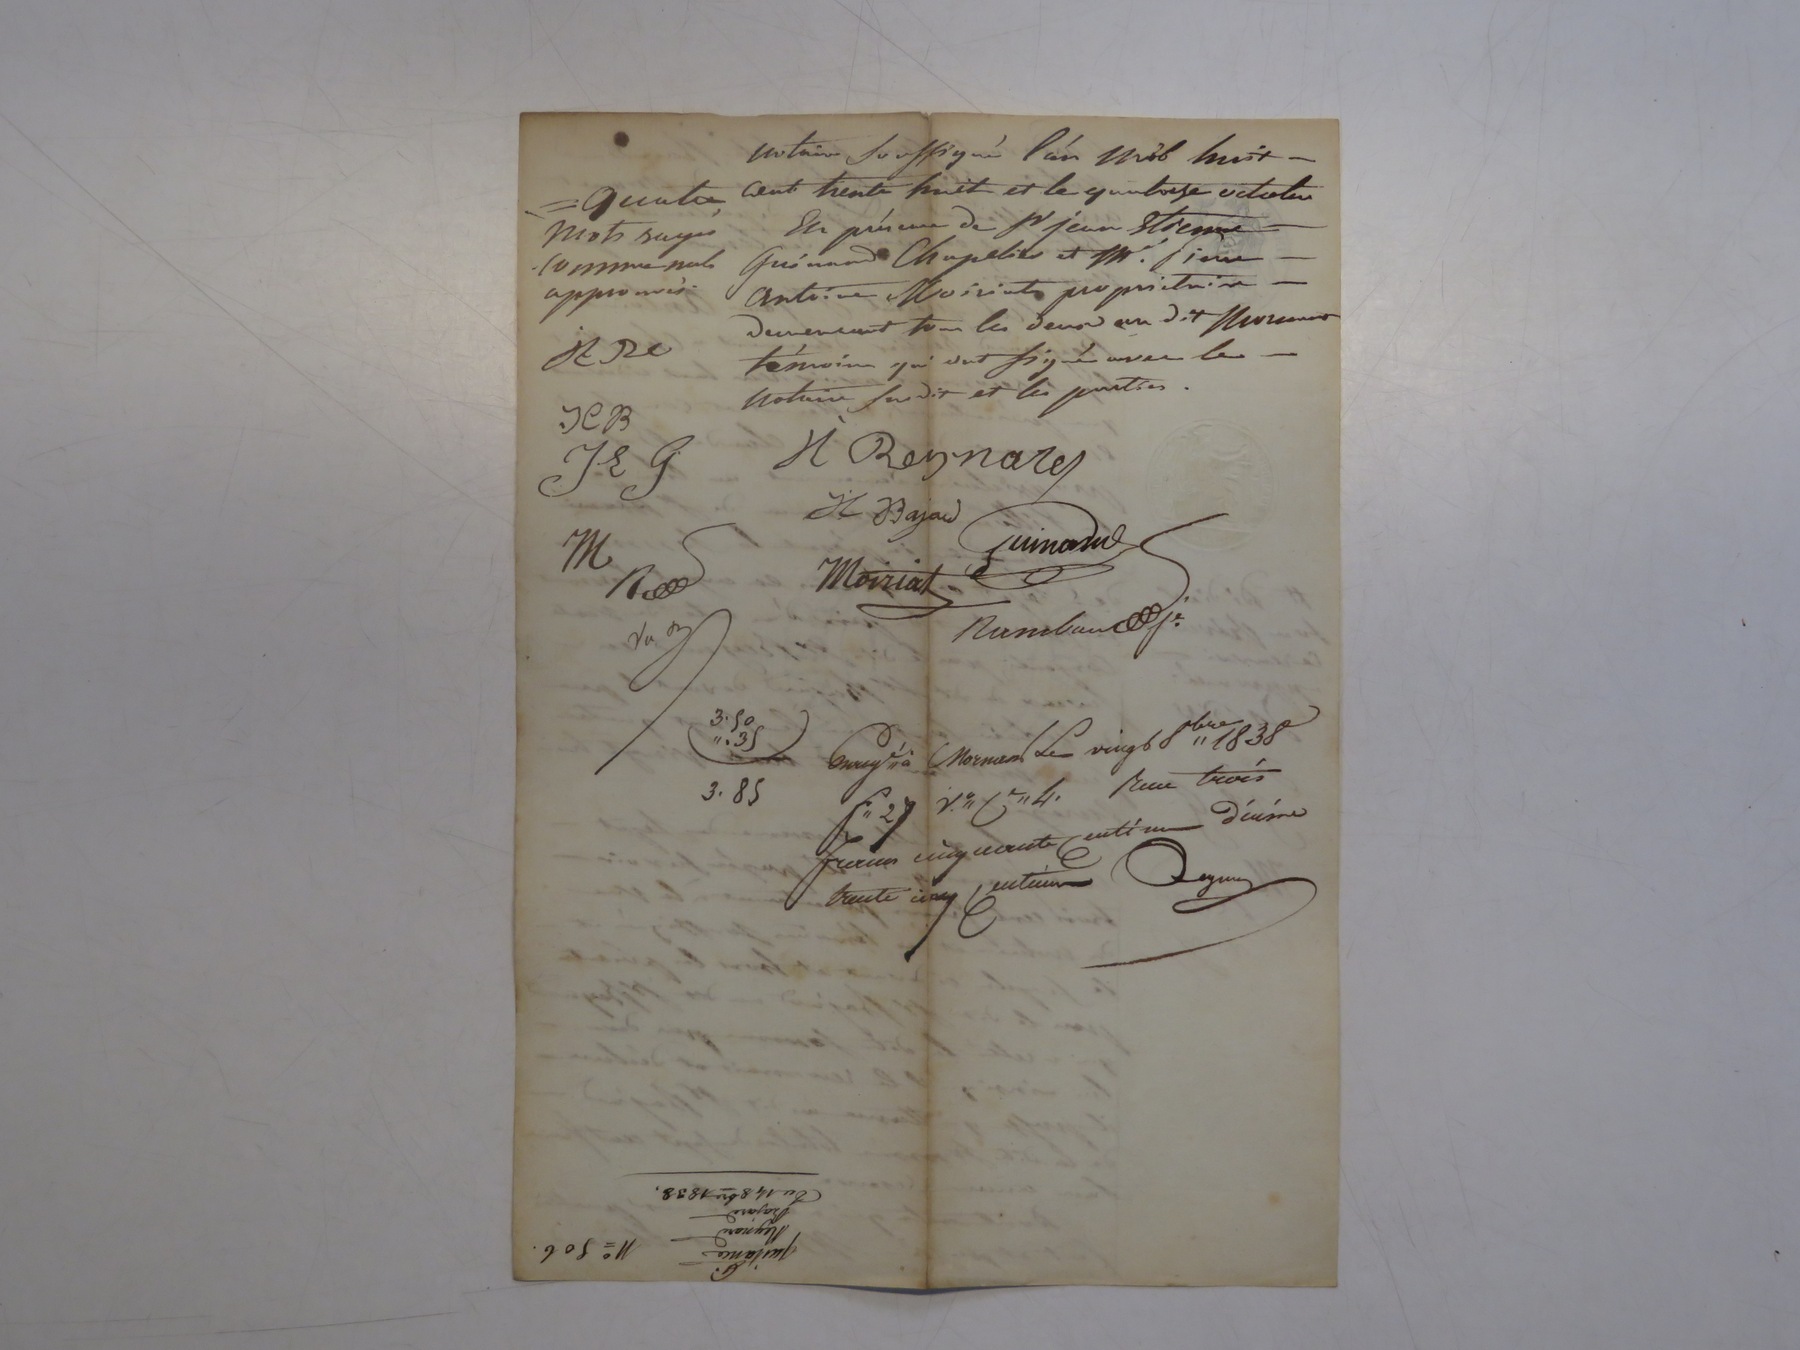 notaire soussigné l'an mil huit –
cent trente huit et le quatorze octobre
En présence de Sr jean Etienne –
Guinand Chapelier et Mr. pierre –
antoine Moiriat propriétaire –
demeurant tous les deux au dit Mornant
témoins qui ont signé avec le –
notaire susdit et les parties.
= Quatre
mots rayés
comme nuls
approuvés.
H Re
H B
JE G
M
H Reynard
H Bajard
Guinand
Moiriat
Rambaud jr.
3.50
".35
3.85
Enregé à Mornant Le vingt 8bre 1838
fo 27 vo Cr 4. Reçu trois
francs cinquante centimes décime
trente cinq centimes
Quittance
Reynard
Bajard
Du 14 8bre 1838.
No 506.